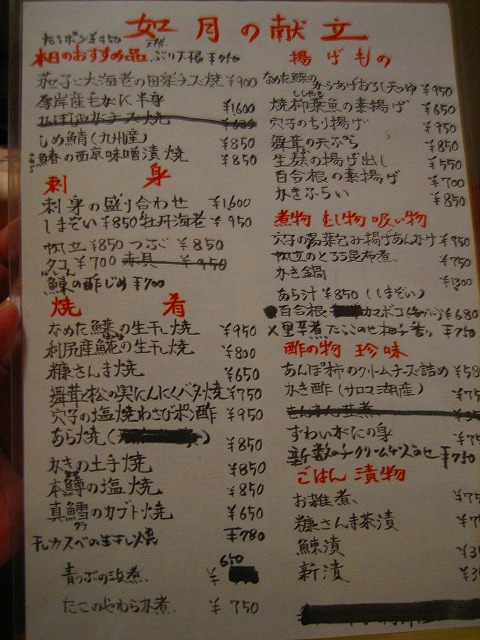 如月の献立
本日のおすすめ品 ぶり大根 ¥750
茄子と大海老の田楽チーズ焼 ¥900
厚岸産毛がに半身 ¥1600
しめ鯖(九州産) ¥850
鰆の西京味噌漬焼 ¥850
刺身
刺身の盛り合わせ ¥1600
しまぞい ¥850 牡丹海老 ¥950
帆立 ¥850 つぶ ¥850
タコ ¥700 赤貝 ¥950
鰊の酢じめ ¥700
焼肴
なめた鰈の生干し焼 ¥950
利尻産𩸽の生干し焼 ¥800
糠さんま焼 ¥650
舞茸と松の実にんにくバタ焼 ¥750
穴子の塩焼わさびポン酢 ¥950
あら焼 ¥850
かきの土手焼 ¥850
本鱒の塩焼 ¥850
真鱈のカブト焼 ¥650
干しカスベの生干し焼 ¥780
青つぶの沢煮 ¥650
たこのやわらか煮 ¥750
揚げもの
なめた鰈のからあげおろし天つゆ ¥950
焼柳葉魚の素揚げ ¥650
穴子のちり揚げ ¥950
舞茸の天ぷら ¥850
生麩の揚げ出し ¥550
百合根の素揚げ ¥700
かきふらい ¥850
煮物 むし物 吸い物
穴子の湯葉包み揚げあんかけ ¥950
帆立のとろろ昆布煮 ¥750
かき鍋 ¥1300
あら汁 ¥850 (しまぞい)
百合根 カマボコ ¥680
里芋煮たこのせ柚子香り ¥750
酢の物 珍味
あんぽ柿のクリームチーズ詰め ¥58
かき酢(サロマ湖産) ¥75
ずわいがにの身 ¥75
新数の子クリームチーズあえ ¥750
ごはん 漬物
お雑煮 ¥75
糠さんま茶漬 ¥7
鰊漬 ¥3
新漬 ¥3